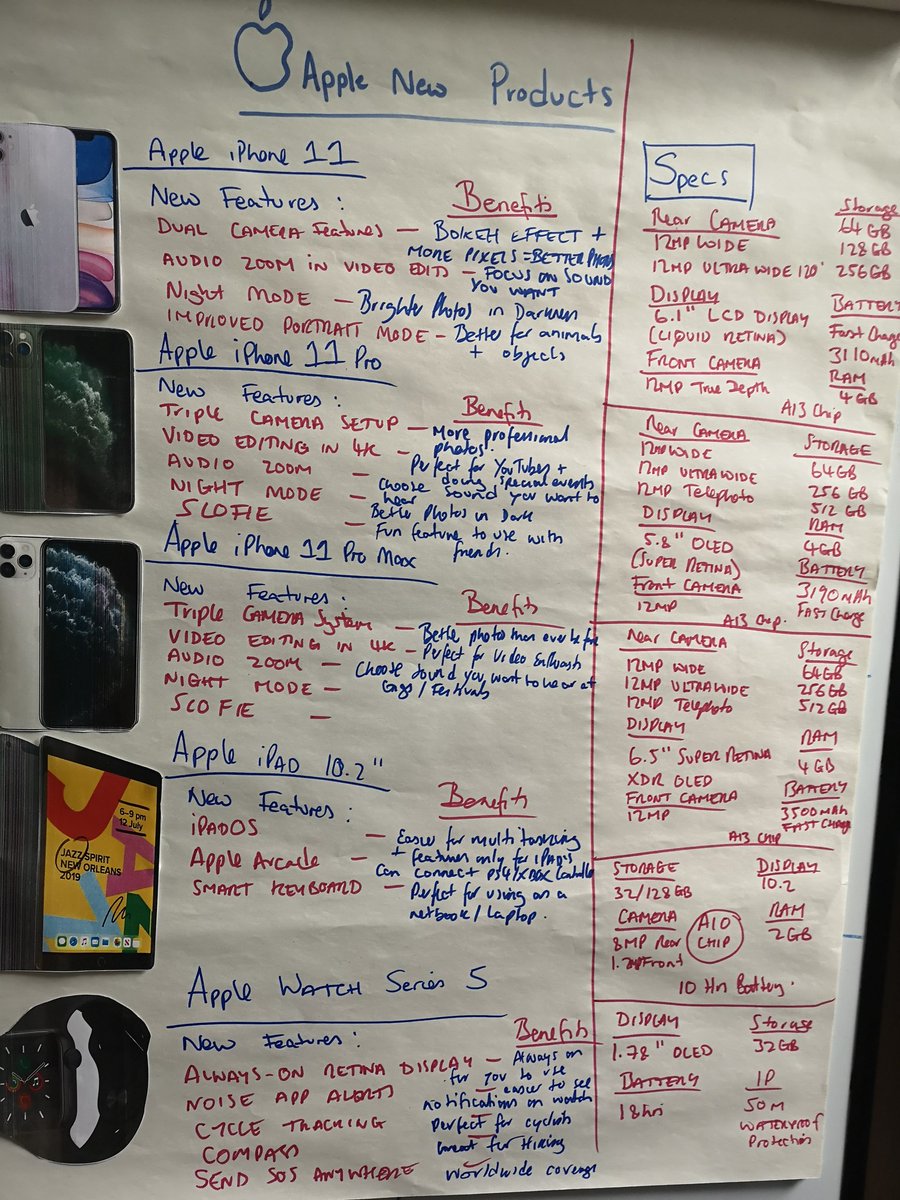 Apple New Products
Apple iPhone 11
New Features :
Benefits
DUAL CAMERA Features — BOKEH EFFECT +
MORE PIXELS = BETTER PHOTOS
AUDIO ZOOM IN VIDEO EDITS — FOCUS ON SOUND
YOU WANT
Night MODE — Brighter Photos in Darkness
IMPROVED PORTRAIT MODE — Better for animals
+ objects
Apple iPhone 11 Pro
New Features :
Benefits
TRIPLE CAMERA SETUP — More professional
photos.
VIDEO EDITING IN 4K — Perfect for YouTubers +
doing special events
AUDIO ZOOM — Choose
hear sound you want to
NIGHT MODE — Better Photos in Dark
SLOFIE — Fun feature to use with
friends.
Apple iPhone 11 Pro Max
New Features :
Benefits
Triple CAMERA System — Better photos than ever before
VIDEO EDITING IN 4K — Perfect for Video
AUDIO ZOOM — Choose sound you want to hear at
Gigs / Festivals
NIGHT MODE —
SLOFIE —
Apple iPAD 10.2"
New Features :
Benefits
iPADOS — Easier for multi tasking
+ features only for iPads
Apple Arcade — Can connect PS4/XBOX Controller
SMART KEYBOARD — Perfect for using on a
netbook / Laptop.
6–9 pm
12 July
JAZZ SPIRIT
NEW ORLEANS
2019
Apple WATCH Series 5
New Features :
Benefits
ALWAYS-ON RETINA DISPLAY — Always on
for you to use
NOISE APP ALERTS — easier to see
notifications on watch
CYCLE TRACKING — Perfect for cyclists
COMPASS — Great for Hiking
SEND SOS ANYWHERE — Worldwide coverage
Specs
Rear CAMERA
12MP WIDE
12MP ULTRA WIDE 120°
DISPLAY
6.1" LCD DISPLAY
(LIQUID RETINA)
FRONT CAMERA
12MP True Depth
Storage
64 GB
128GB
256GB
BATTERY
Fast Charge
3110mAh
RAM
4 GB
A13 Chip
Rear CAMERA
12MP WIDE
12MP ULTRAWIDE
12MP Telephoto
DISPLAY
5.8" OLED
(SUPER RETINA)
Front CAMERA
12MP
STORAGE
64GB
256 GB
512 GB
RAM
4GB
BATTERY
3190mAh
FAST Charge
A13 Chip.
Rear CAMERA
12MP WIDE
12MP ULTRAWIDE
12MP Telephoto
DISPLAY
6.5" SUPER RETINA
XDR OLED
FRONT CAMERA
12MP
Storage
64GB
256GB
512GB
RAM
4 GB
BATTERY
3500mAh
FAST CHARGE
A13 CHIP
STORAGE
32/128GB
CAMERA
8MP Rear
1.2MP Front
A10
CHIP
DISPLAY
10.2
RAM
2GB
10 Hrs Battery.
DISPLAY
1.78" OLED
BATTERY
18hrs
Storage
32GB
IP
50M
WATERPROOF
Protection